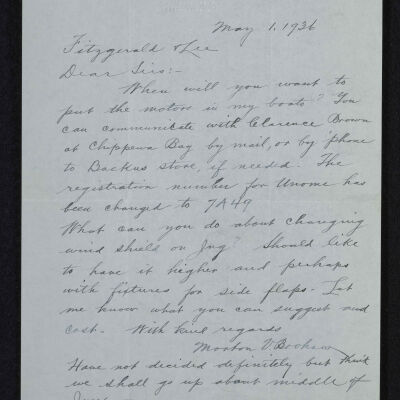 May 1. 1936
Fitzgerald & Lee
Dear Sirs:-
When will you want to
put the motors in my boats? You
can communicate with Clarence Brown
at Chippewa Bay by mail, or by 'phone
to Backus store, if needed. The
registration number for Unome has
been changed to 7A49
What can you do about changing
wind shield on Jug? Should like
to have it higher and perhaps
with fixtures for side flaps. Let
me know what you can suggest and
cost. With kind regards
Morton V.
Have not decided definitely but think
we shall go up about middle of